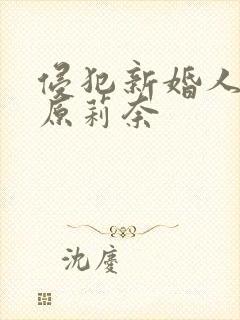 侵犯新婚人
原莉奈
沈慶